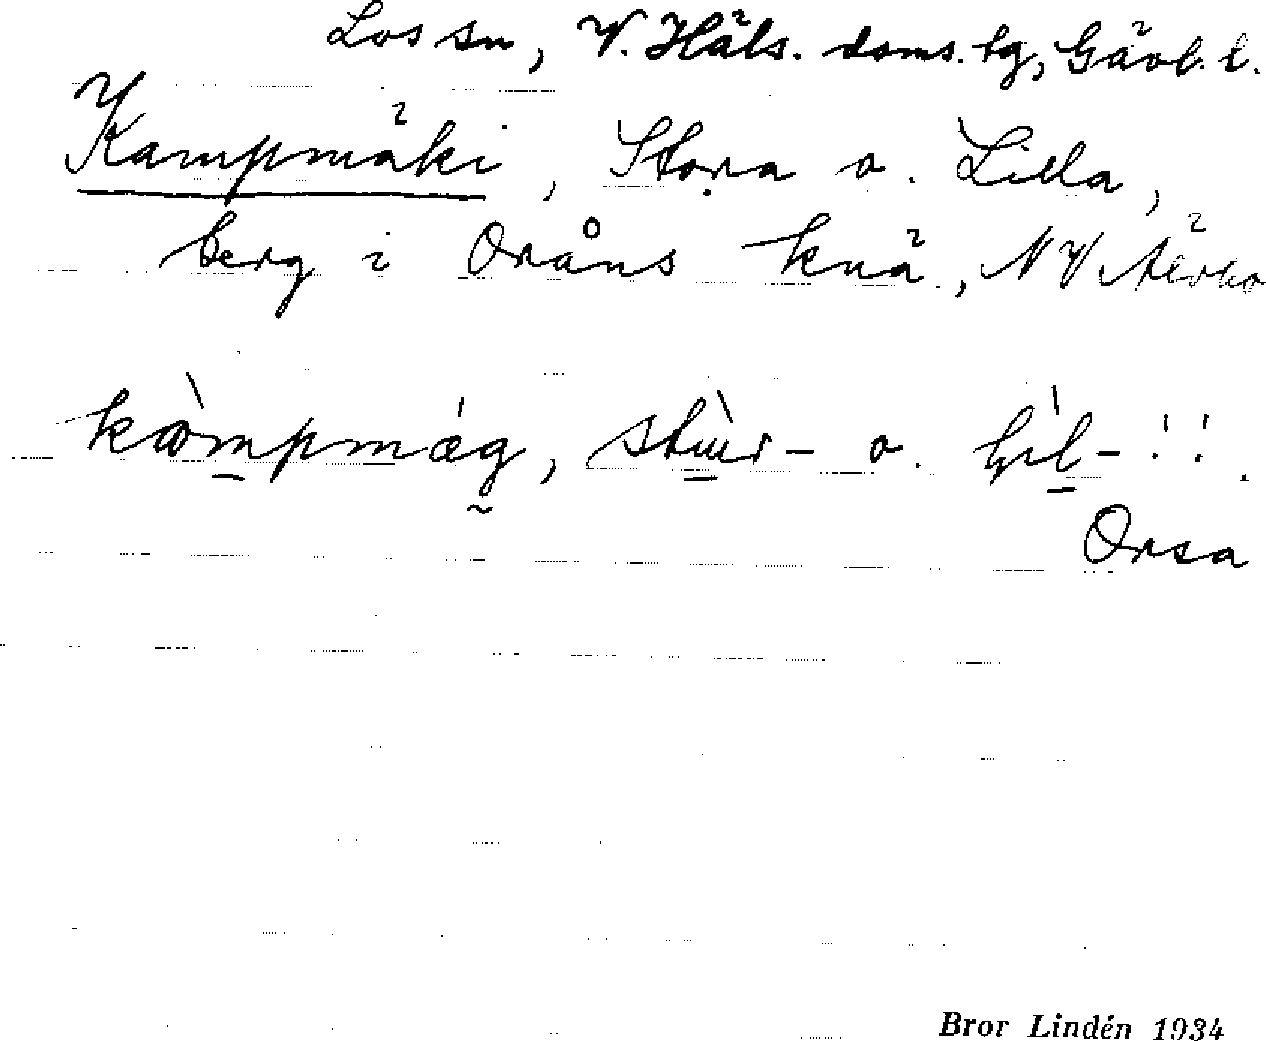 Los sn, V. Häls. doms. tg, Gävl. l.
Kampmäki, Stora o. Lilla,
berg i Oråns knä, NV Älvho
kòmpmæg, stùr- o. lìl- !!.
Orsa
Bror Lindén 1934